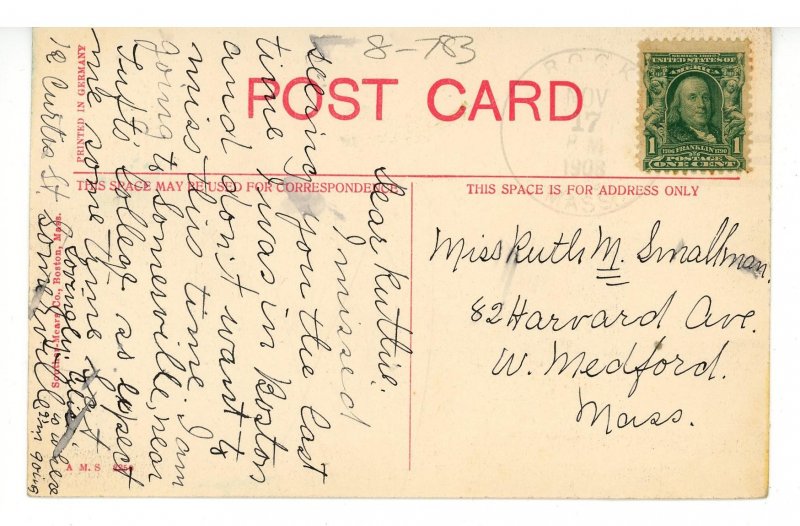 8-783
POST CARD
PRINTED IN GERMANY
SERIES 1902
UNITED STATES OF
AMERICA
1706 FRANKLIN 1790
POSTAGE
1 ONE CENT 1
ROCK
NOV
17
M
1908
MASS
THIS SPACE MAY BE USED FOR CORRESPONDENCE
THIS SPACE IS FOR ADDRESS ONLY
Dear Ruthie:
I missed
seeing you the last
time I was in Boston
and don't want to
miss this time. I am
going to Somerville, near
Tufts College as expect
me some time Sat
18 Curtis St Somerville
is where
I'm going
Miss Ruth M. Smallman.
82 Harvard Ave.
W. Medford.
Mass.
Co., Boston, Mass.
A M. S